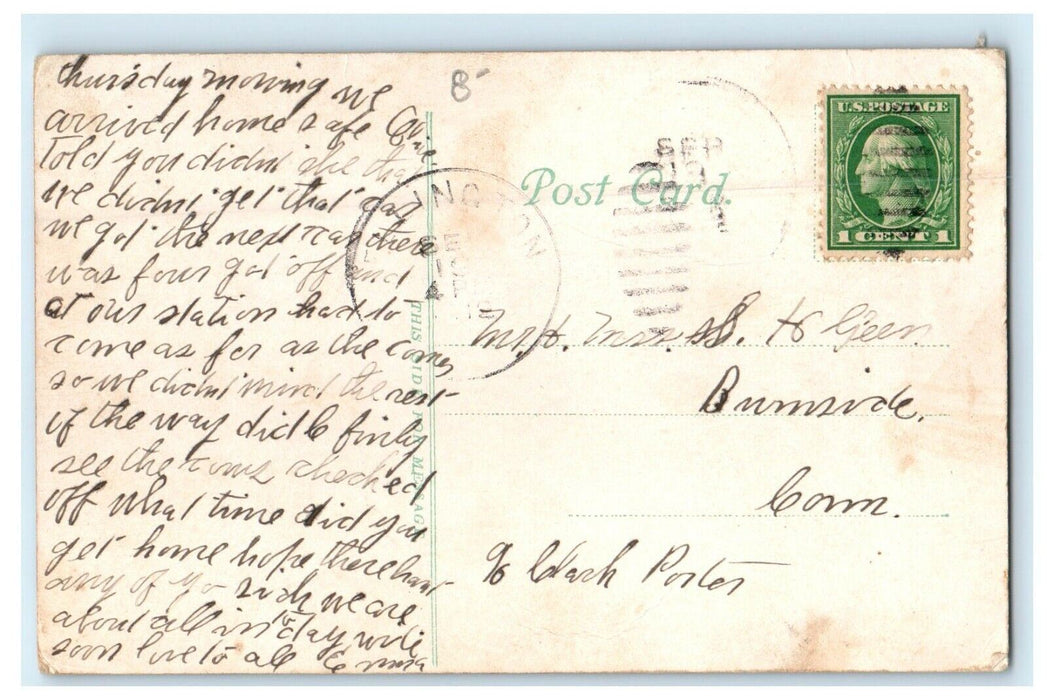 thursday morning we
arrived home safe
told you didnt she that
we didnt get that car
we got the next car there
was four got off and
at our station had to
come as far as the
so we didnt mind the rest
of the way did
see the checked
off what time did you
get home hope there hant
any of yo sick we are
about all in to day write
soon love to all Emma
8-
Post Card.
THIS SIDE FOR MESSAGE
INGTON
SE
4 PM
SEP
U.S. POSTAGE
1 CENT 1
Mr +. Mrs. H Geer
Burnside,
Conn.
% Clark Porter